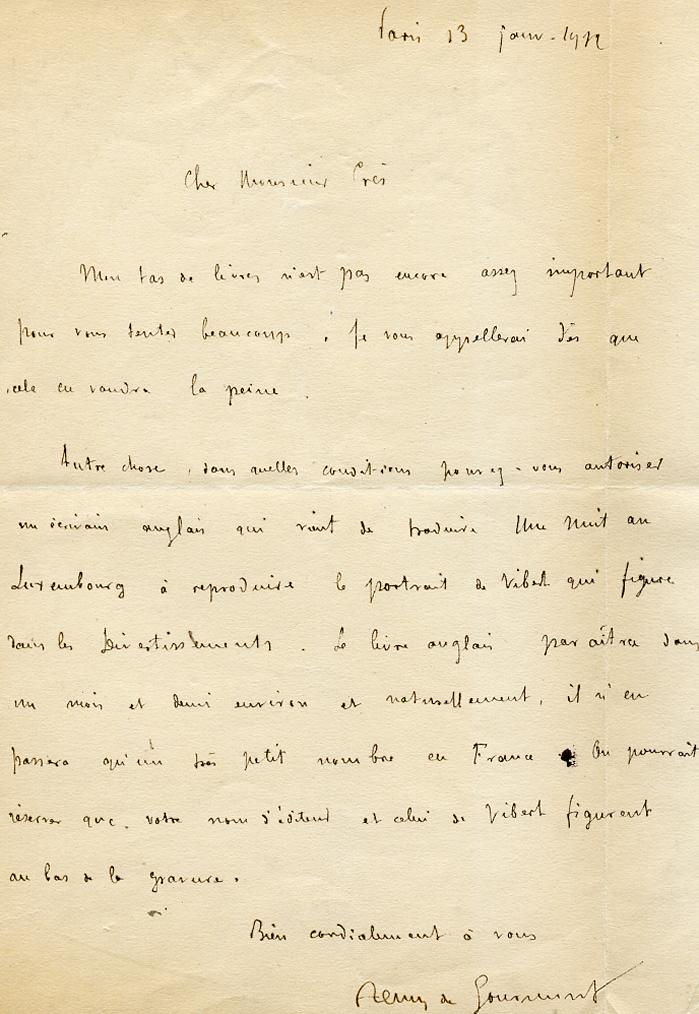 Paris 13 janv. 1912
Cher Monsieur Crès
Mon tas de livres n'est pas encore assez important
pour vous tenter beaucoup. Je vous appellerai dès que
cela en vaudra la peine.
Autre chose, dans quelles conditions pourrez-vous autoriser
un écrivain anglais qui vient de traduire Une Nuit au
Luxembourg à reproduire le portrait de Vibert qui figure
dans les Divertissements. Le livre anglais paraîtra dans
un mois et demi environ et naturellement, il n'en
passera qu'un très petit nombre en France. On pourrait
réserver que votre nom d'éditeur et celui de Vibert figurent
au bas de la gravure.
Bien cordialement à vous
Remy de Gourmont